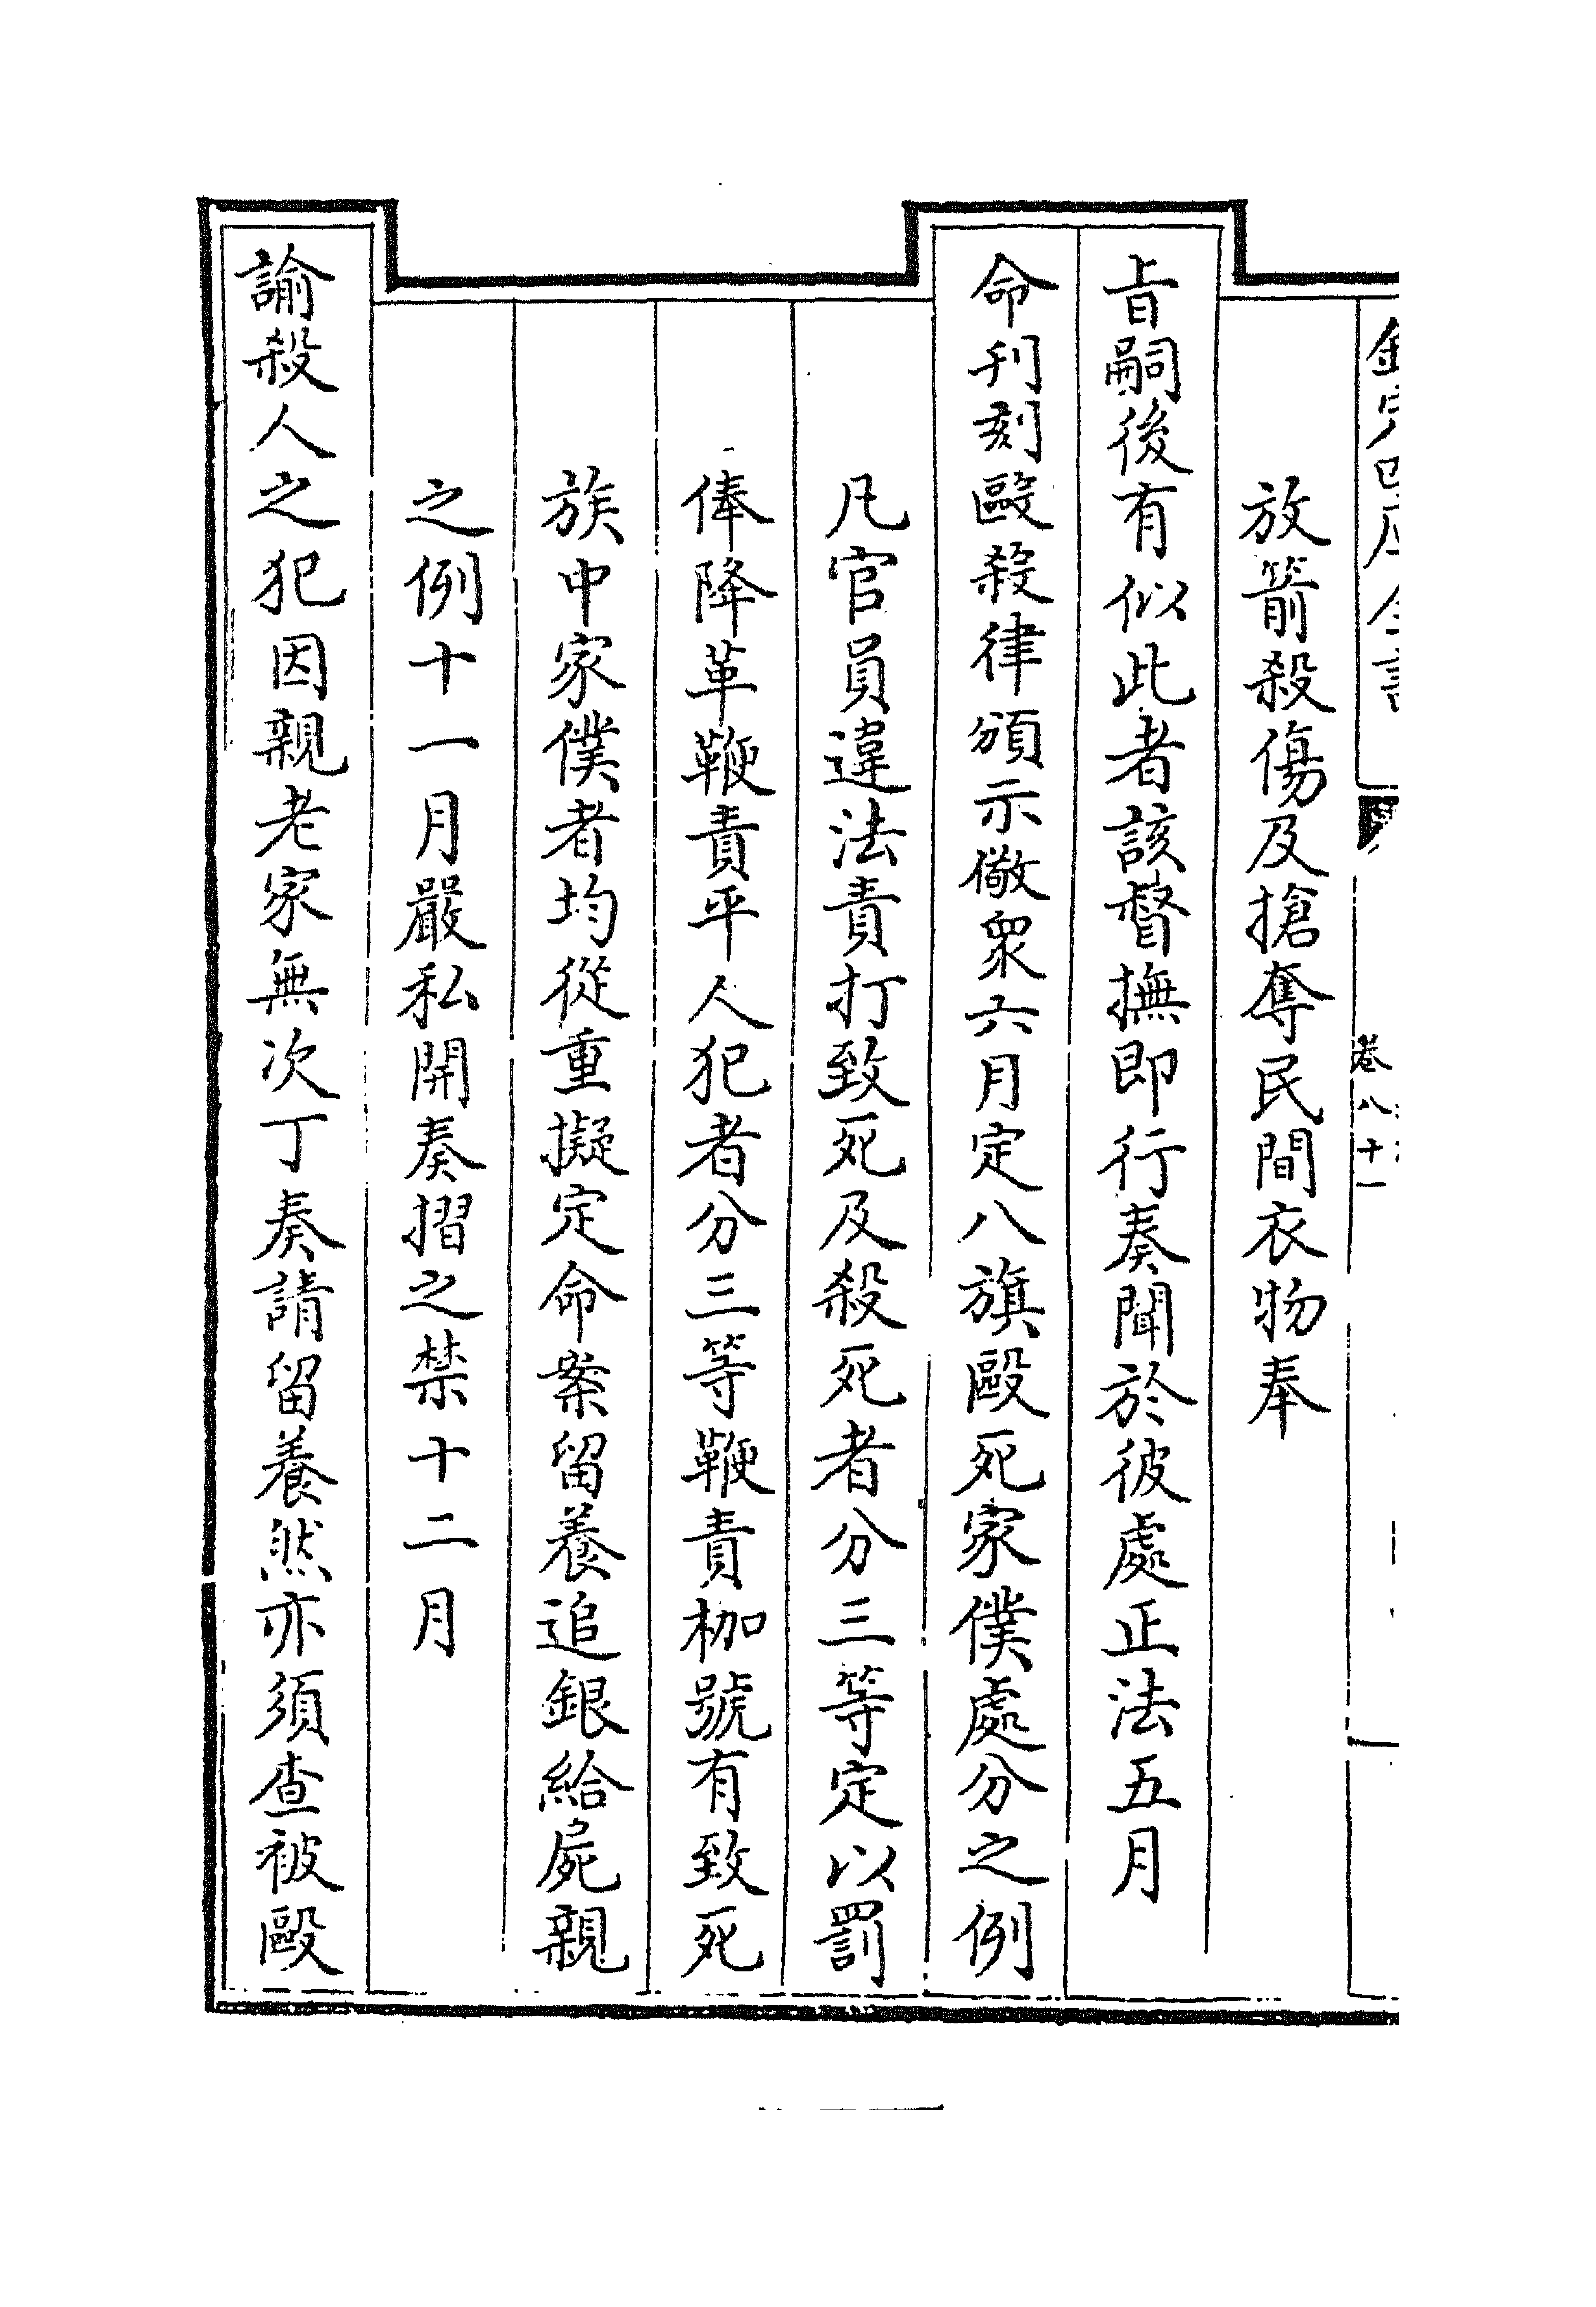 卷八十一
放箭殺傷及搶奪民間衣物奉
旨嗣後有似此者該督撫即行奏聞於彼處正法五月
命刋刻毆殺律頒示儆衆六月定八旗毆死家僕處分之例
凡官員違法責打致死及殺死者分三等定以罰
俸降革鞭責平人犯者分三等鞭責枷號有致死
族中家僕者均從重擬定命案留養追銀給屍親
之例十一月嚴私開奏摺之禁十二月
諭殺人之犯因親老家無次丁奏請留養然亦須查被毆